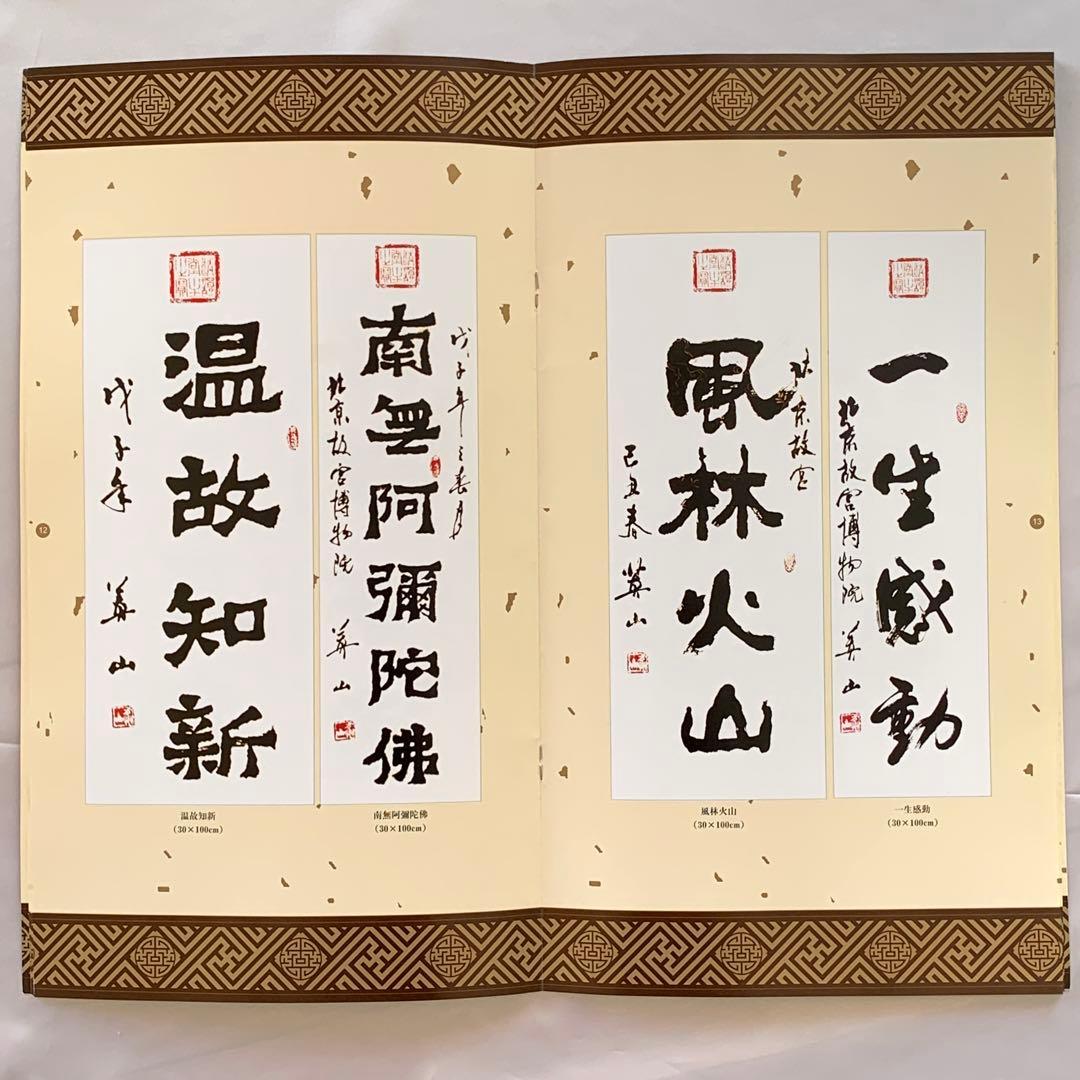 温故知新
戊子年
山
温故知新
(30×100cm)
12
戊子年之春月
南無阿彌陀佛
北京故宮博物院
山
南無阿彌陀佛
(30×100cm)
京故宮
風林火山
己丑春
山
風林火山
(30×100cm)
一生感動
北京故宮博物院
山
一生感動
(30×100cm)
13